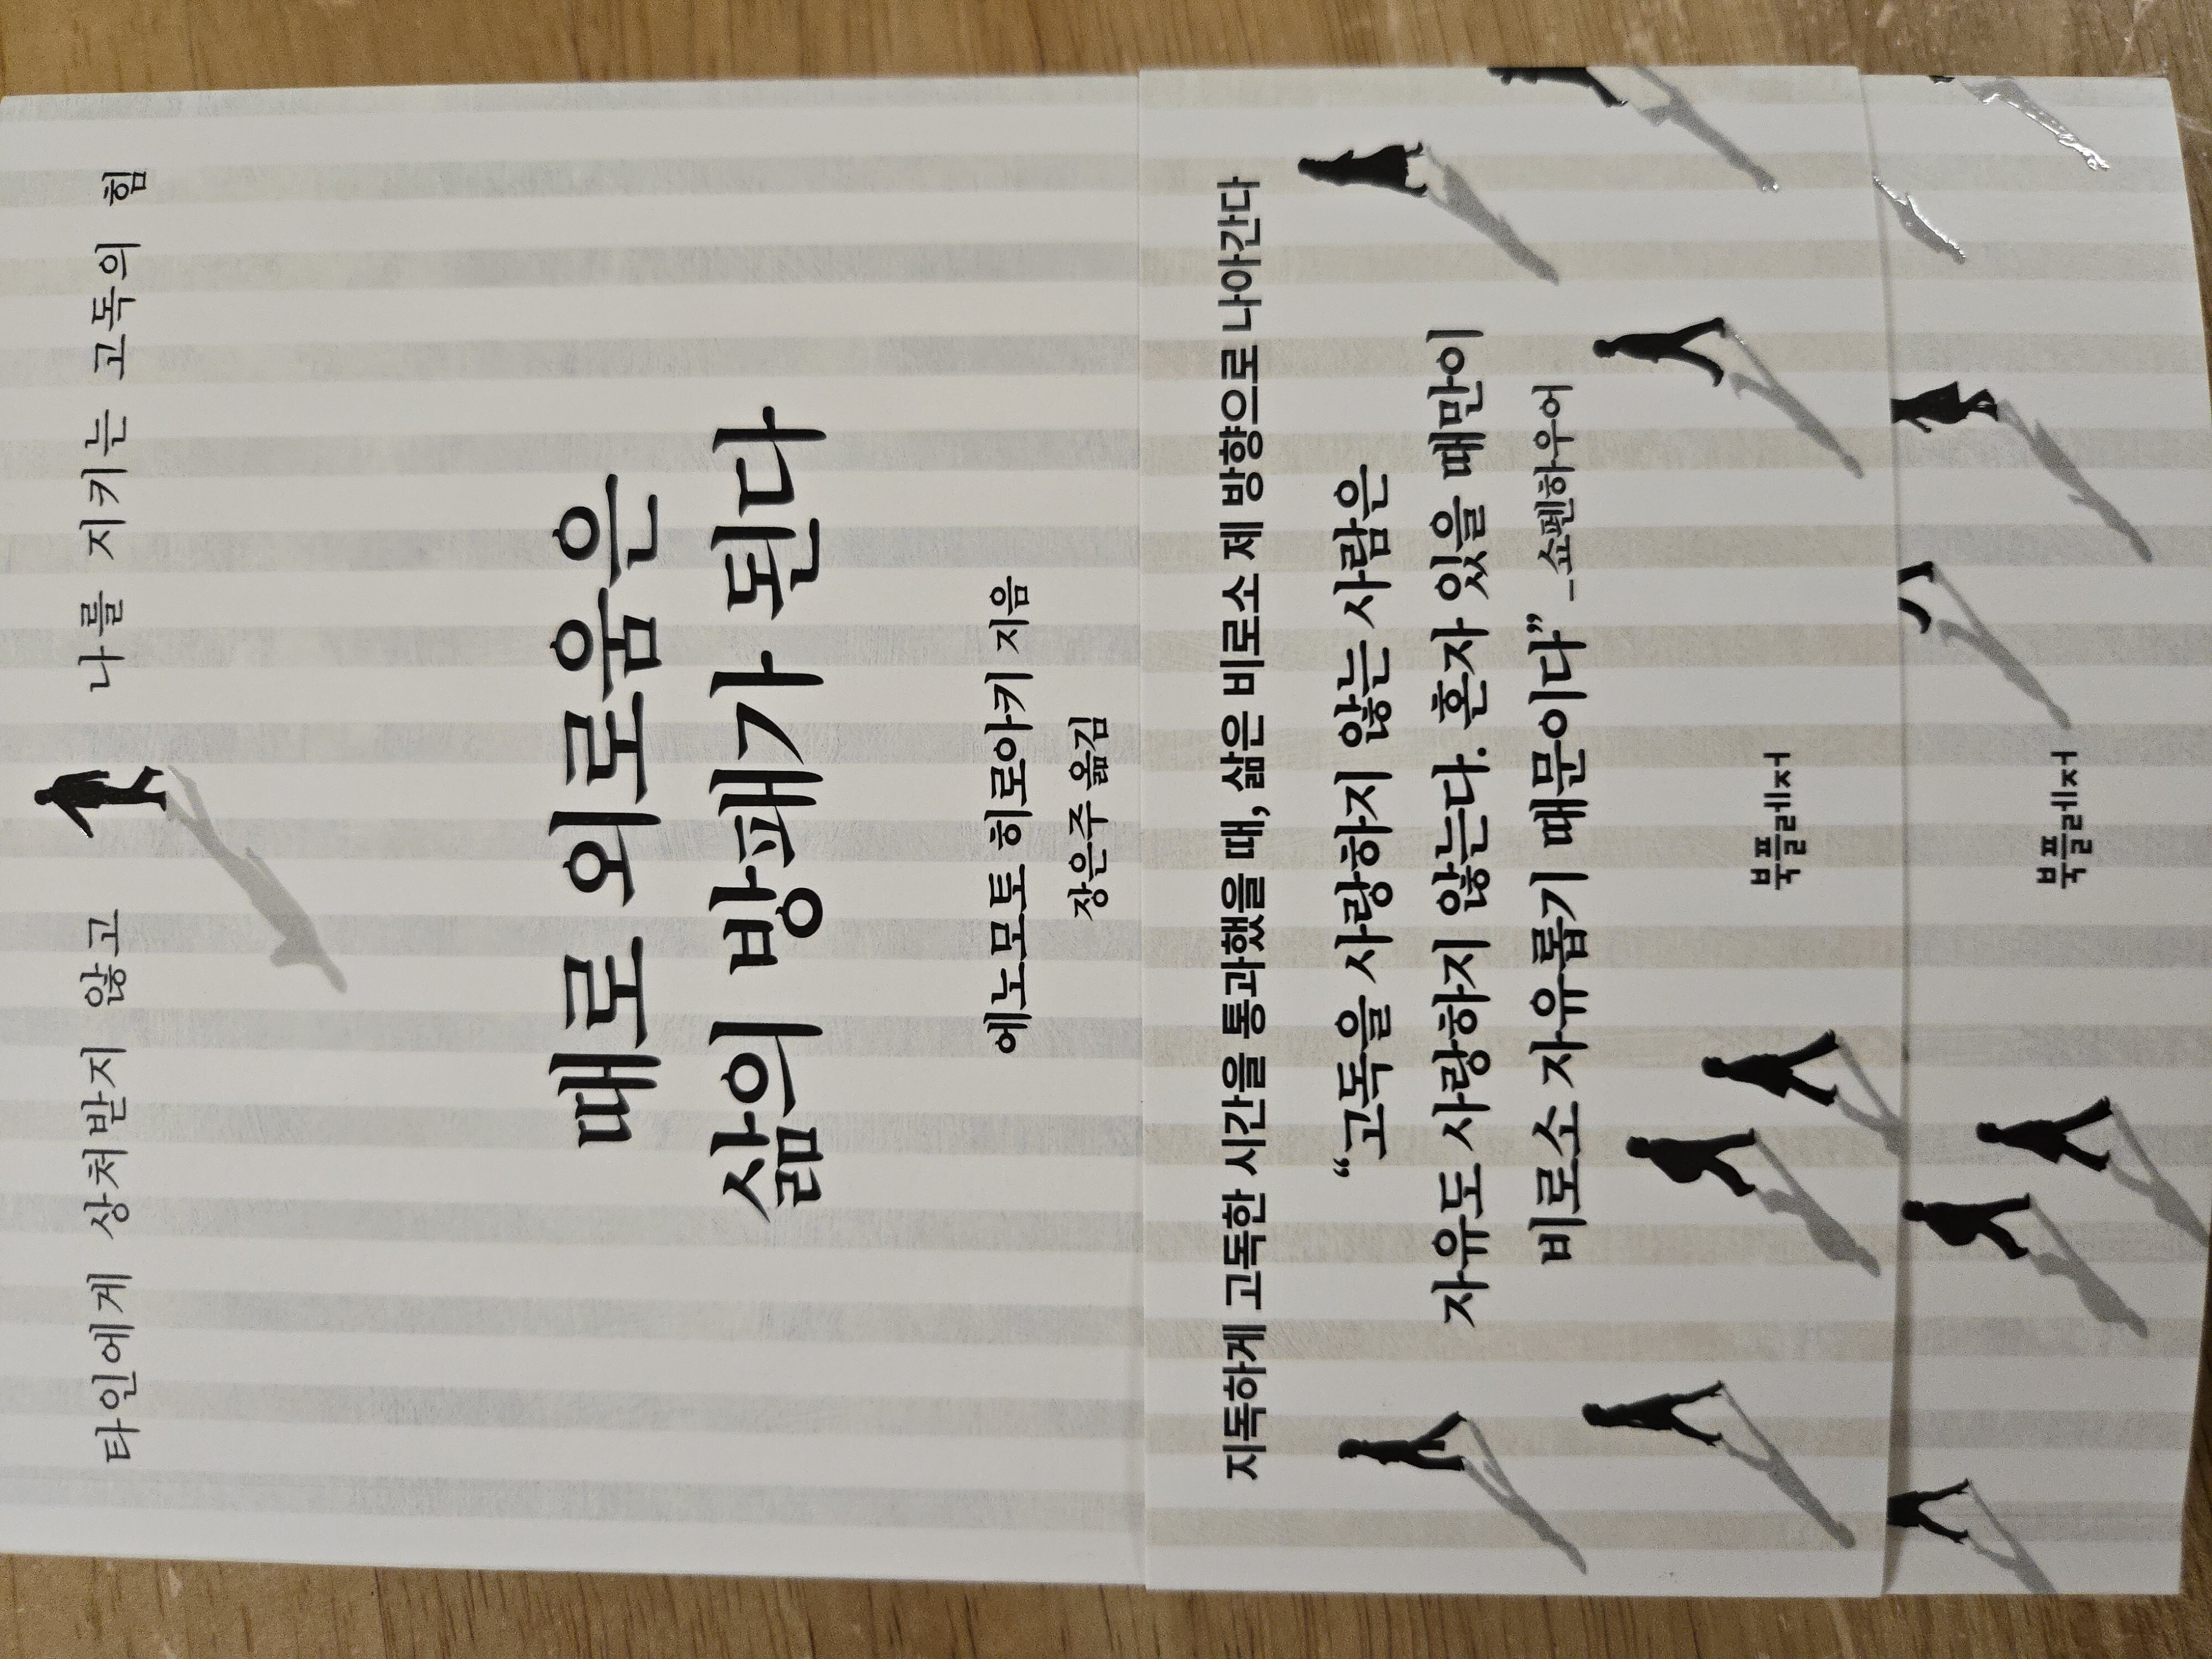 타인에게 상처받지 않고 나를 지키는 고독의 힘
때로 외로움은
삶의 방패가 된다
에노모토 히로아키 지음
장은주 옮김
지독하게 고독한 시간을 통과했을 때, 삶은 비로소 제 방향으로 나아간다
“고독을 사랑하지 않는 사람은
자유도 사랑하지 않는다. 혼자 있을 때만이
비로소 자유롭기 때문이다” _쇼펜하우어
북플레저
북플레저